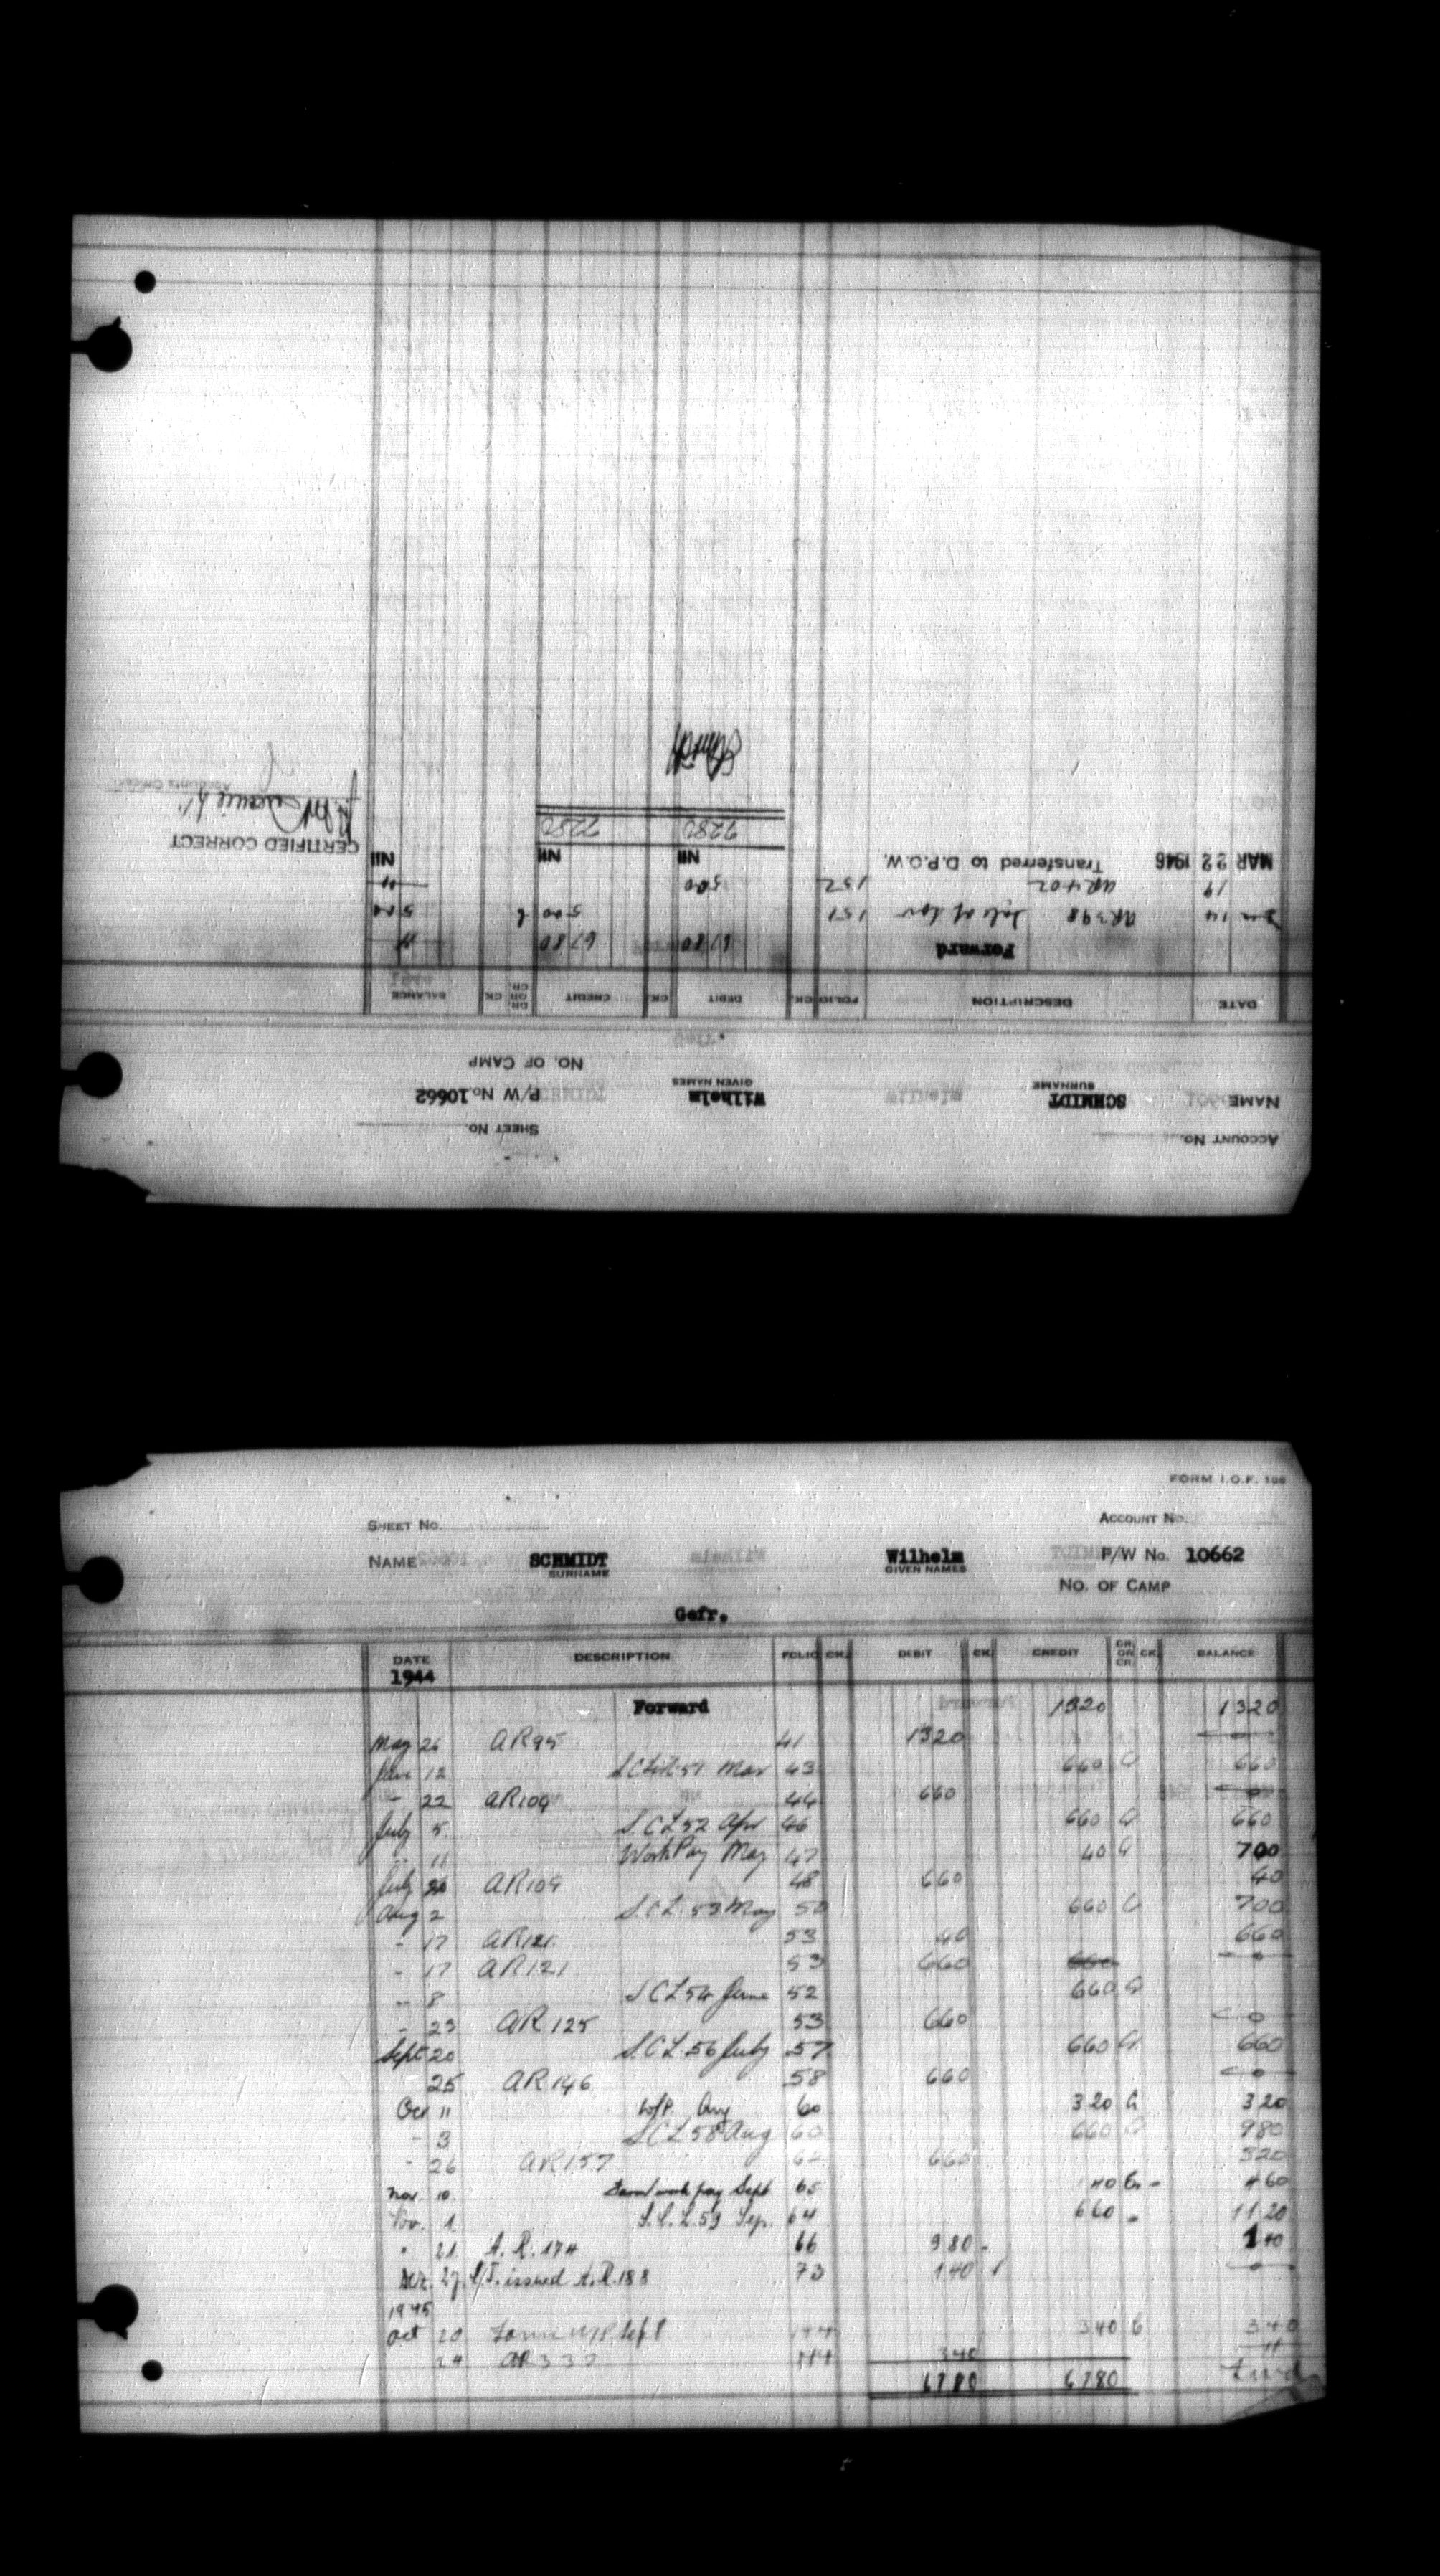 ACCOUNT No.
SHEET No.
NAME SCHMIDT Wilhelm P/W No. 10662
SURNAME GIVEN NAMES
NO. OF CAMP
DATE DESCRIPTION FOLIO CK. DEBIT CK. CREDIT DR. OR CR. CK. BALANCE
Forward 6780 6780
14 AR398 Sale of 151 500 500
19 AR402 152 500
MAR 22 1946 Transferred to D.P.O.W. Nil Nil Nil
7280 7280
CERTIFIED CORRECT
Accounts Officer
FORM I.O.F. 108
SHEET No. ACCOUNT No.
NAME SCHMIDT Wilhelm P/W No. 10662
SURNAME GIVEN NAMES
NO. OF CAMP
Gefr.
DATE DESCRIPTION FOLIO CK. DEBIT CK. CREDIT DR. OR CR. CK. BALANCE
1944
Forward 1320 1320
May 26 AR95 41 1320 0
June 12 51 Mar 43 660 660
" 22 AR104 44 660 0
July 5 S.C.L 52 Apr 46 660 660
" 11 Work Pay May 47 40 700
July 26 AR109 48 660 40
Aug 2 S.C.L. 53 May 50 660 700
" 17 AR121 53 40 660
" 17 AR121 53 660 660 0
" 8 S C L 54 June 52 660
" 23 AR 125 53 660 0
Sept 20 S.C.L. 56 July 57 660 660
25 AR 146 58 660 0
Oct 11 W/P. Aug 60 320 320
" 3 S C L 58 Aug 60 660 980
" 26 AR157 62 660 320
Nov. 10 Farm work pay Sept 65 140 460
Nov. 1 S.C.L. 59 Sep. 64 660 1120
" 21 A.R. 174 66 980 140
Dez. 27 issued A.R. 188 73 140 0
1945
Oct 20 Farm W/P. Sept 144 340 340
24 AR 337 144 340
6780 6780 fwd